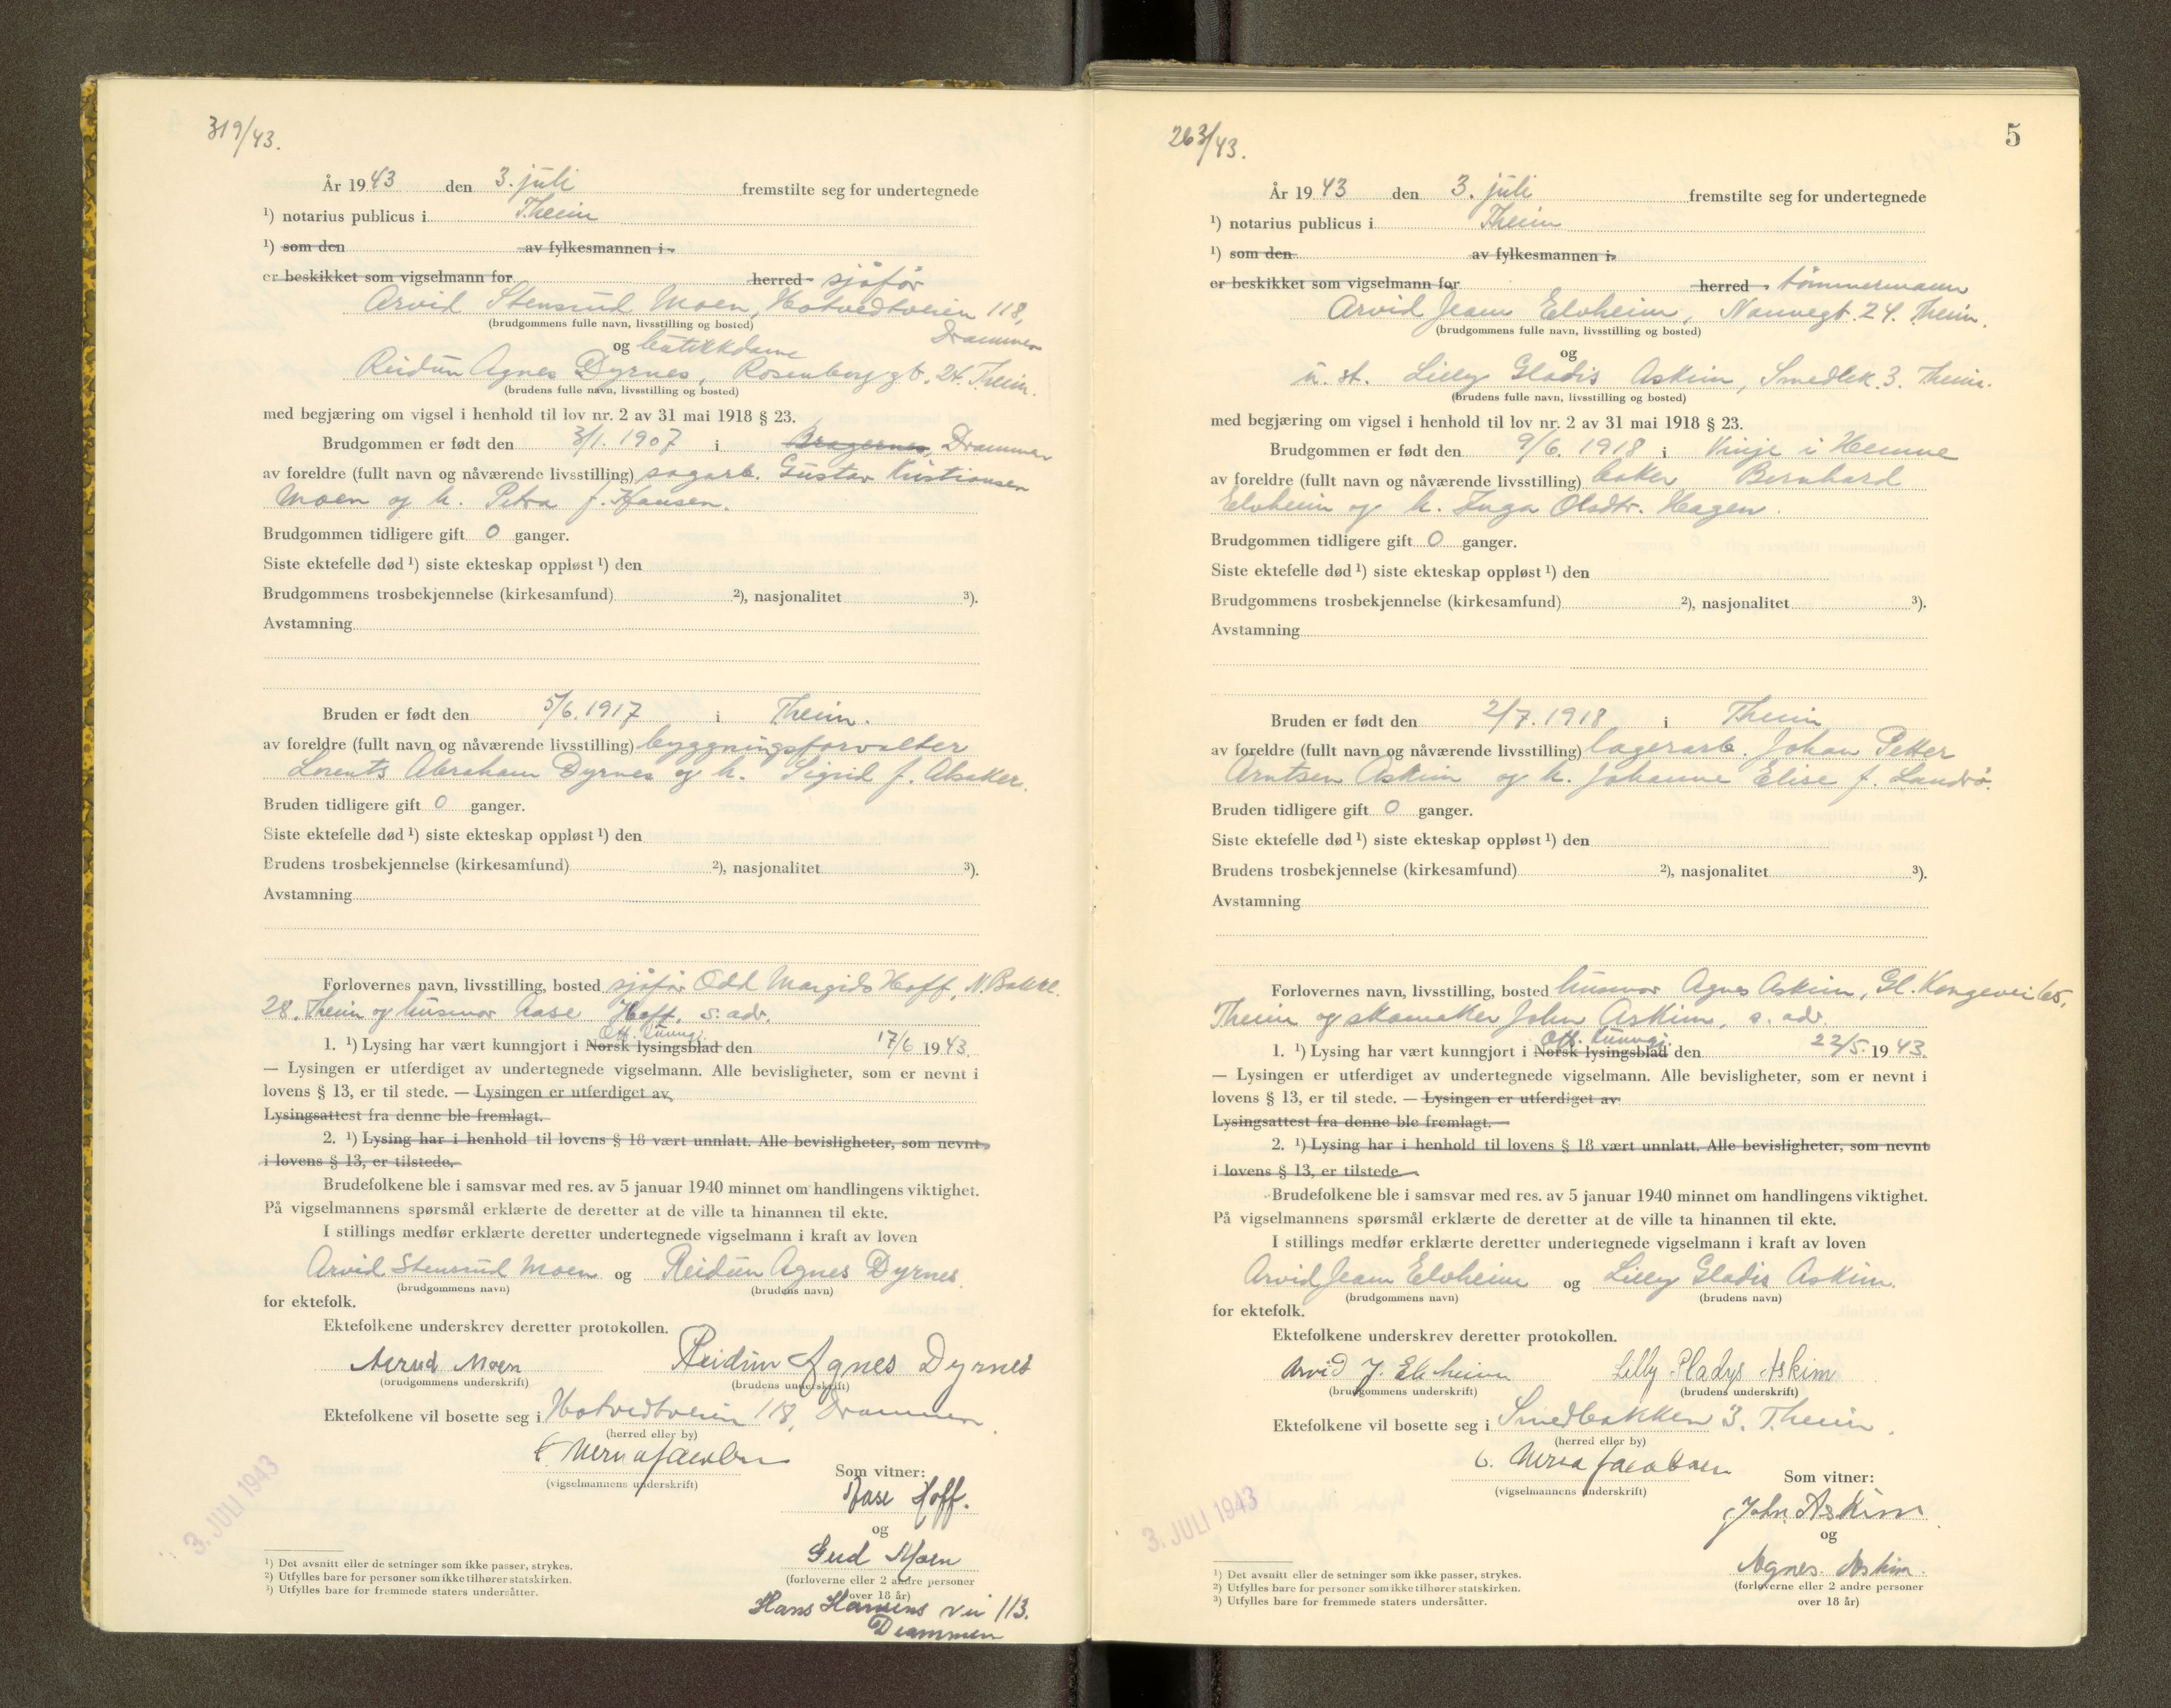 319/43.
År 1943 den 3. juli fremstilte seg for undertegnede
¹) notarius publicus i Theim
¹) som den av fylkesmannen i
er beskikket som vigselmann for herred sjåfør
Arvid Stensrud Moen, Hotvedtveien 118,
(brudgommens fulle navn, livsstilling og bosted)
Drammen
og butikkdame
Reidun Agnes Dyrnes, Rosenborggt. 24. Theim.
(brudens fulle navn, livsstilling og bosted)
med begjæring om vigsel i henhold til lov nr. 2 av 31 mai 1918 § 23.
Brudgommen er født den 3/1. 1907 i Bragernes, Drammen
av foreldre (fullt navn og nåværende livsstilling) sagarb. Gustav Kristiansen
Moen og h. Petra f. Hansen.
Brudgommen tidligere gift 0 ganger.
Siste ektefelle død ¹) siste ekteskap oppløst ¹) den
Brudgommens trosbekjennelse (kirkesamfund) ²), nasjonalitet ³).
Avstamning
Bruden er født den 5/6. 1917 i Theim.
av foreldre (fullt navn og nåværende livsstilling) byggningsforvalter
Lorents Abraham Dyrnes og h. Sigrid f. Alsaker.
Bruden tidligere gift 0 ganger.
Siste ektefelle død ¹) siste ekteskap oppløst ¹) den
Brudens trosbekjennelse (kirkesamfund) ²), nasjonalitet ³).
Avstamning
Forlovernes navn, livsstilling, bosted sjåfør Odd Margido Hoff, N. Bakkl.
28. Theim og husmor Aase Hoff, s. adr.
Off. kunngj.
1. ¹) Lysing har vært kunngjort i Norsk lysingsblad den 17/6 1943.
— Lysingen er utferdiget av undertegnede vigselmann. Alle bevisligheter, som er nevnt i
lovens § 13, er til stede. — Lysingen er utferdiget av
Lysingsattest fra denne ble fremlagt.
2. ¹) Lysing har i henhold til lovens § 18 vært unnlatt. Alle bevisligheter, som nevnt
i lovens § 13, er tilstede.
Brudefolkene ble i samsvar med res. av 5 januar 1940 minnet om handlingens viktighet.
På vigselmannens spørsmål erklærte de deretter at de ville ta hinannen til ekte.
I stillings medfør erklærte deretter undertegnede vigselmann i kraft av loven
Arvid Stensrud Moen og Reidun Agnes Dyrnes.
(brudgommens navn) (brudens navn)
for ektefolk.
Ektefolkene underskrev deretter protokollen.
Arvid Moen Reidun Agnes Dyrnes
(brudgommens underskrift) (brudens underskrift)
Ektefolkene vil bosette seg i Hotvedtveien 118, Drammen.
(herred eller by)
Jacobsen
(vigselmannens underskrift)
Som vitner:
Aase Hoff.
og
Gud Moen
(forloverne eller 2 andre personer
over 18 år)
Hans Hansens vei 113.
Drammen
3. JULI 1943
¹) Det avsnitt eller de setninger som ikke passer, strykes.
²) Utfylles bare for personer som ikke tilhører statskirken.
³) Utfylles bare for fremmede staters undersåtter.
263/43.
5
År 1943 den 3. juli fremstilte seg for undertegnede
¹) notarius publicus i Theim
¹) som den av fylkesmannen i
er beskikket som vigselmann for herred tømmermann
Arvid Jean Elvheim, Nannegt. 24. Theim.
(brudgommens fulle navn, livsstilling og bosted)
og
u. st. Lilly Gladis Askim, Smedbk. 3. Theim.
(brudens fulle navn, livsstilling og bosted)
med begjæring om vigsel i henhold til lov nr. 2 av 31 mai 1918 § 23.
Brudgommen er født den 9/6. 1918 i Vinje i Hemne
av foreldre (fullt navn og nåværende livsstilling) baker Bernhard
Elvheim og h. Inga Olsdtr. Hagen.
Brudgommen tidligere gift 0 ganger.
Siste ektefelle død ¹) siste ekteskap oppløst ¹) den
Brudgommens trosbekjennelse (kirkesamfund) ²), nasjonalitet ³).
Avstamning
Bruden er født den 2/7. 1918 i Theim
av foreldre (fullt navn og nåværende livsstilling) lagerarb. Johan Petter
Arntsen Askim og h. Johanne Elise f. Landrø.
Bruden tidligere gift 0 ganger.
Siste ektefelle død ¹) siste ekteskap oppløst ¹) den
Brudens trosbekjennelse (kirkesamfund) ²), nasjonalitet ³).
Avstamning
Forlovernes navn, livsstilling, bosted husmor Agnes Askim, Gl. Kongevei 65,
Theim og skomaker John Askim, s. adr.
Off. kunngj.
1. ¹) Lysing har vært kunngjort i Norsk lysingsblad den 22/5. 1943.
— Lysingen er utferdiget av undertegnede vigselmann. Alle bevisligheter, som er nevnt i
lovens § 13, er til stede. — Lysingen er utferdiget av
Lysingsattest fra denne ble fremlagt.
2. ¹) Lysing har i henhold til lovens § 18 vært unnlatt. Alle bevisligheter, som nevnt
i lovens § 13, er tilstede
Brudefolkene ble i samsvar med res. av 5 januar 1940 minnet om handlingens viktighet.
På vigselmannens spørsmål erklærte de deretter at de ville ta hinannen til ekte.
I stillings medfør erklærte deretter undertegnede vigselmann i kraft av loven
Arvid Jean Elvheim og Lilly Gladis Askim.
(brudgommens navn) (brudens navn)
for ektefolk.
Ektefolkene underskrev deretter protokollen.
Arvid J. Elvheim Lilly Gladys Askim
(brudgommens underskrift) (brudens underskrift)
Ektefolkene vil bosette seg i Smedbakken 3. Theim.
(herred eller by)
Jacobsen
(vigselmannens underskrift)
Som vitner:
John Askim
og
Agnes Askim.
(forloverne eller 2 andre personer
over 18 år)
3. JULI 1943
¹) Det avsnitt eller de setninger som ikke passer, strykes.
²) Utfylles bare for personer som ikke tilhører statskirken.
³) Utfylles bare for fremmede staters undersåtter.